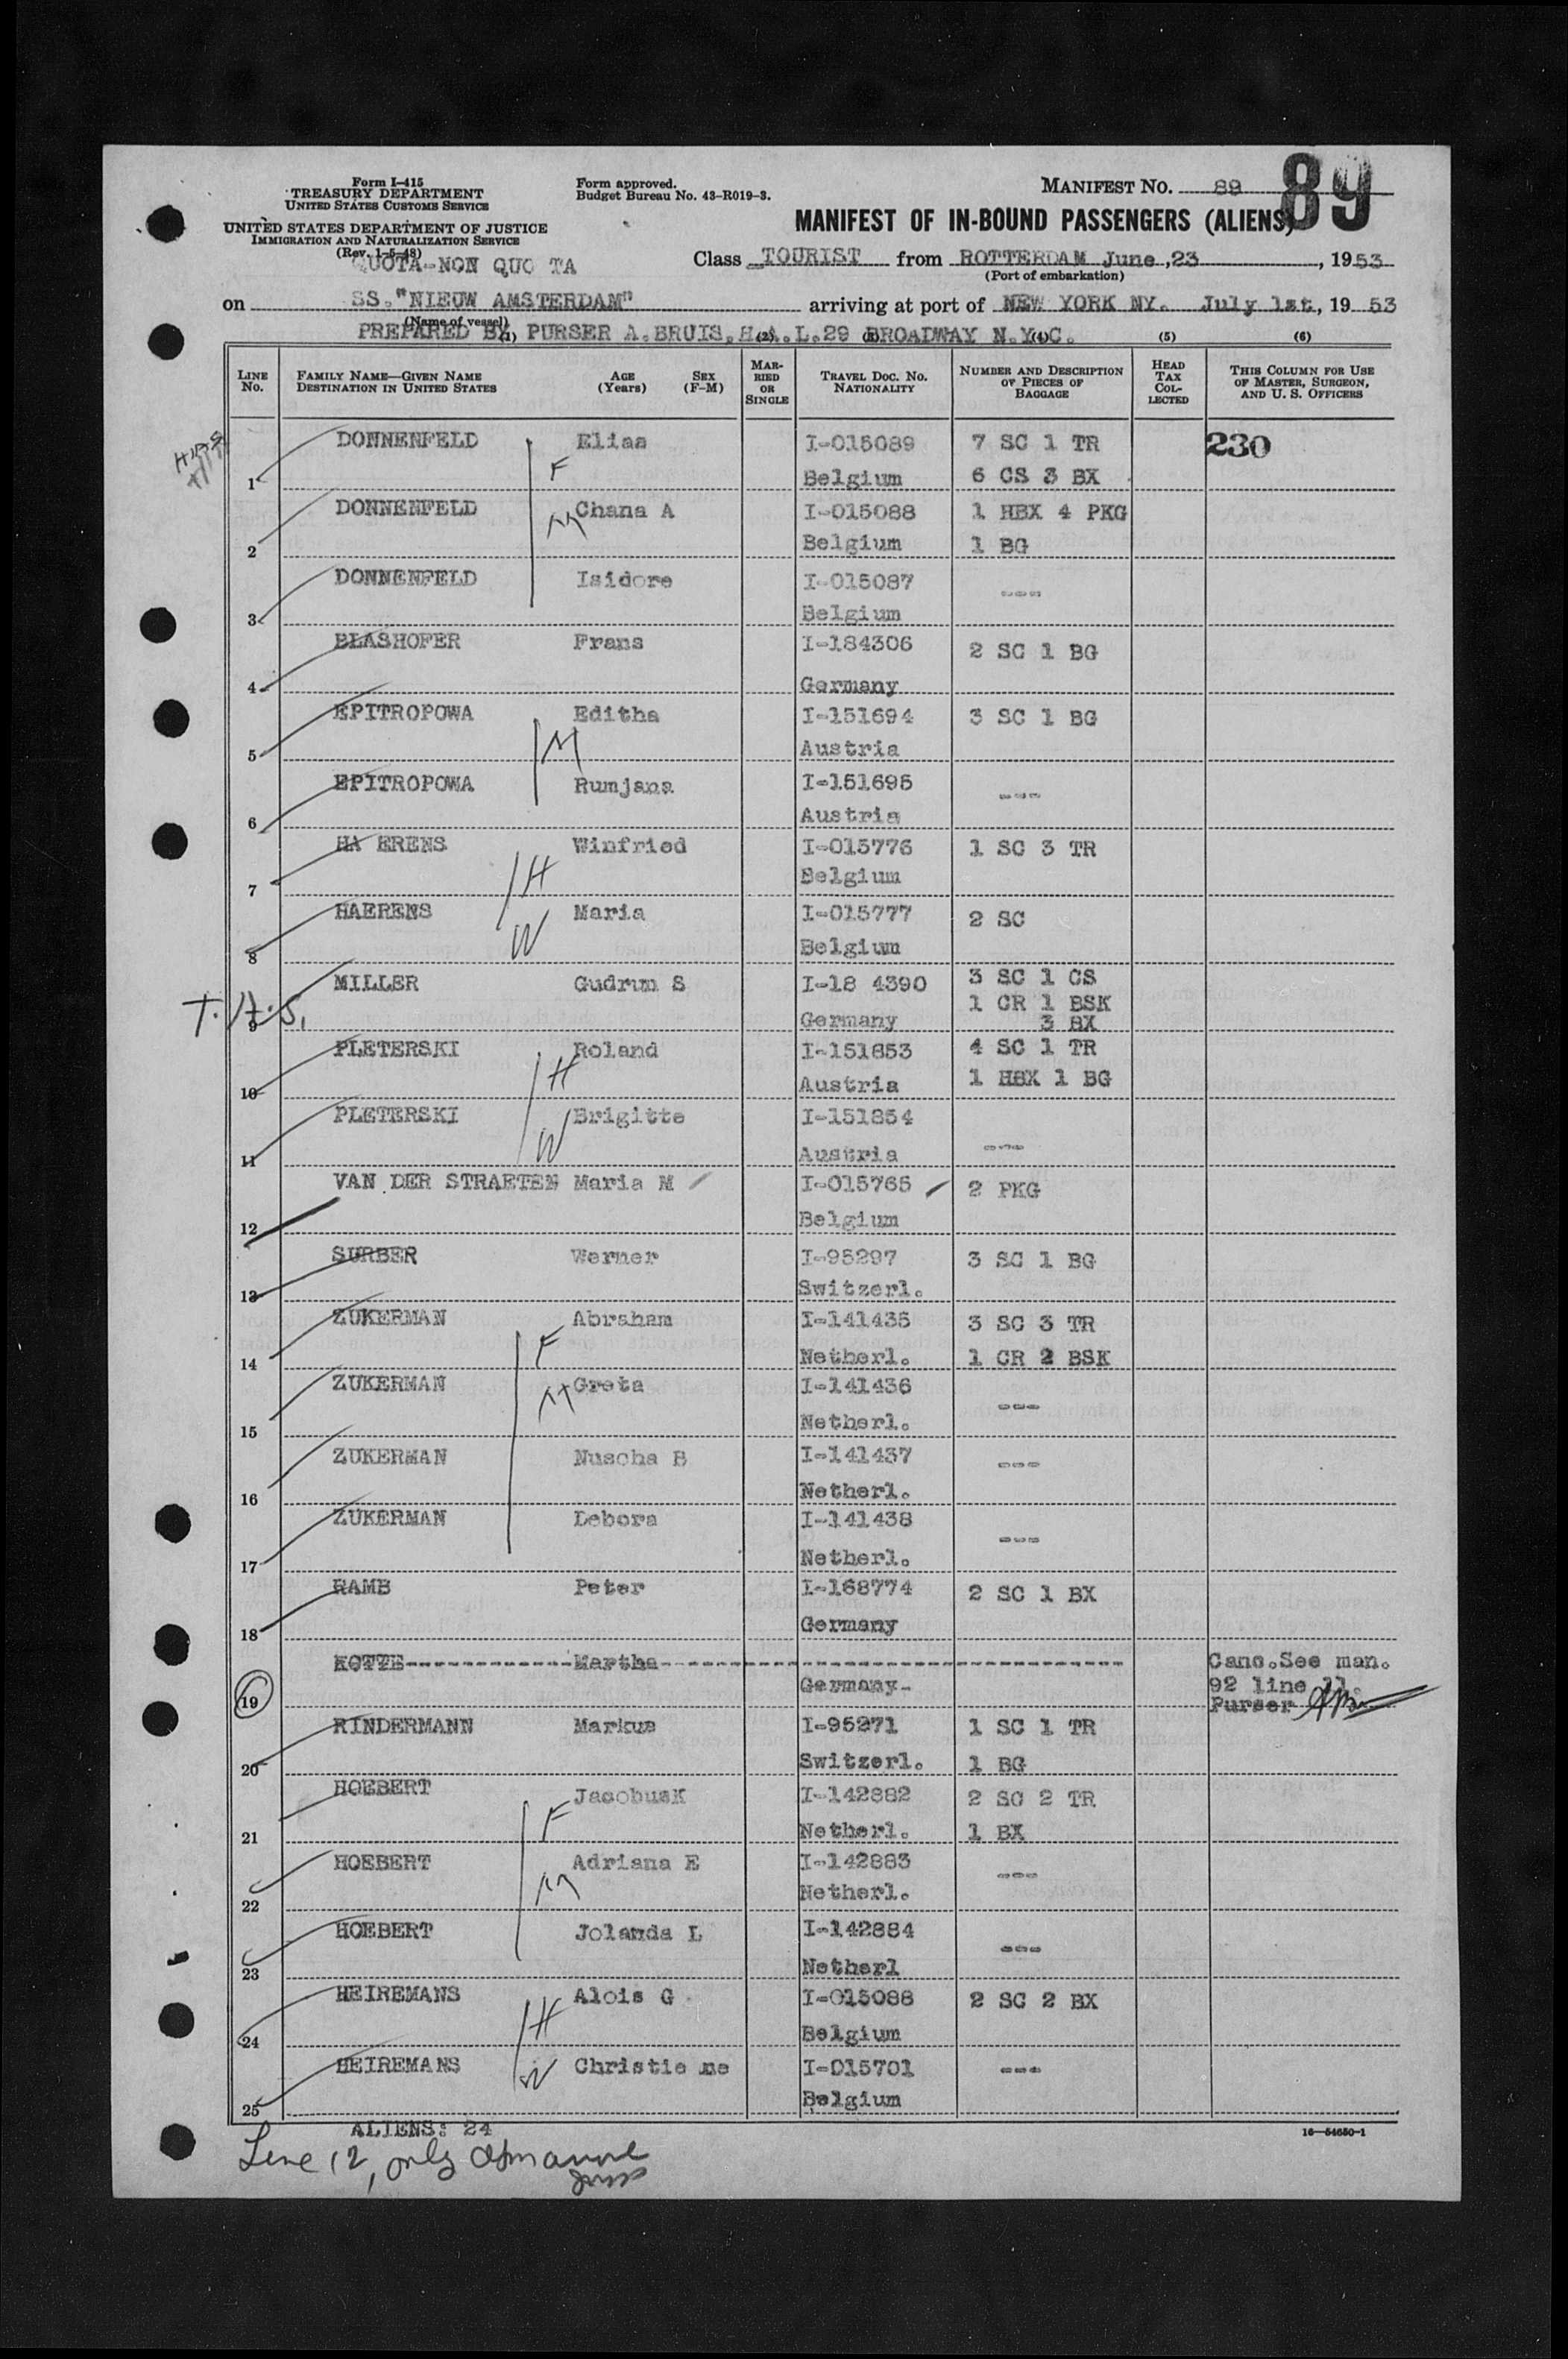 Form I-415
TREASURY DEPARTMENT
UNITED STATES CUSTOMS SERVICE
UNITED STATES DEPARTMENT OF JUSTICE
IMMIGRATION AND NATURALIZATION SERVICE
(Rev. 1-5-48)
QUOTA-NON QUO TA
Form approved.
Budget Bureau No. 43-R019-3.
MANIFEST NO. 89
89
MANIFEST OF IN-BOUND PASSENGERS (ALIENS)
Class TOURIST from ROTTERDAM June ,23 , 1953
(Port of embarkation)
on SS."NIEUW AMSTERDAM" arriving at port of NEW YORK NY. July 1st, 19 53
(Name of vessel)
PREPARED BY PURSER A.BRUIS.H.A.L.29 BROADWAY N.Y.C.
(1) (2) (3) (4) (5) (6)
LINE No. FAMILY NAME—GIVEN NAME DESTINATION IN UNITED STATES AGE (Years) SEX (F-M) MARRIED OR SINGLE TRAVEL DOC. NO. NATIONALITY NUMBER AND DESCRIPTION OF PIECES OF BAGGAGE HEAD TAX COLLECTED THIS COLUMN FOR USE OF MASTER, SURGEON, AND U. S. OFFICERS
DONNENFELD Elias I-015089 7 SC 1 TR 230
1 F Belgium 6 CS 3 BX
DONNENFELD M Chana A I-015088 1 HBX 4 PKG
2 Belgium 1 BG
DONNENFELD Isidore I-015087 ---
3 Belgium
BLASHOFER Frans I-184306 2 SC 1 BG
4 Germany
EPITROPOWA Editha I-151694 3 SC 1 BG
5 M Austria
EPITROPOWA Rumjana I-151695 ---
6 Austria
HA ERENS Winfried I-015776 1 SC 3 TR
7 H Belgium
HAERENS Maria I-015777 2 SC
8 W Belgium
MILLER Gudrun S I-18 4390 3 SC 1 CS
1 CR 1 BSK
T. 9 Germany 3 BX
PLETERSKI Roland I-151853 4 SC 1 TR
10 H Austria 1 HBX 1 BG
PLETERSKI Brigitte I-151854
11 W Austria ---
VAN DER STRAETEN Maria M I-015765 2 PKG
12 Belgium
SURBER Werner I-95297 3 SC 1 BG
13 Switzerl.
ZUKERMAN Abraham I-141435 3 SC 3 TR
14 F Netherl. 1 CR 2 BSK
ZUKERMAN M Greta I-141436 ---
15 Netherl.
ZUKERMAN Nuscha B I-141437 ---
16 Netherl.
ZUKERMAN Debora I-141438 ---
17 Netherl.
RAMB Peter I-168774 2 SC 1 BX
18 Germany
KOTTE Martha Canc.See man.
19 Germany- 92 line 11.
Purser
RINDERMANN Markus I-95271 1 SC 1 TR
20 Switzerl. 1 BG
HOEBERT JacobusK I-142882 2 SC 2 TR
21 F Netherl. 1 BX
HOEBERT Adriana E I-142883 ---
22 M Netherl.
HOEBERT Jolanda L I-142884 ---
23 Netherl
HEIREMANS Alois G I-015088 2 SC 2 BX
24 H Belgium
HEIREMANS W Christie ne I-015701 ---
25 Belgium
ALIENS: 24
16—54650-1
Line 12, only